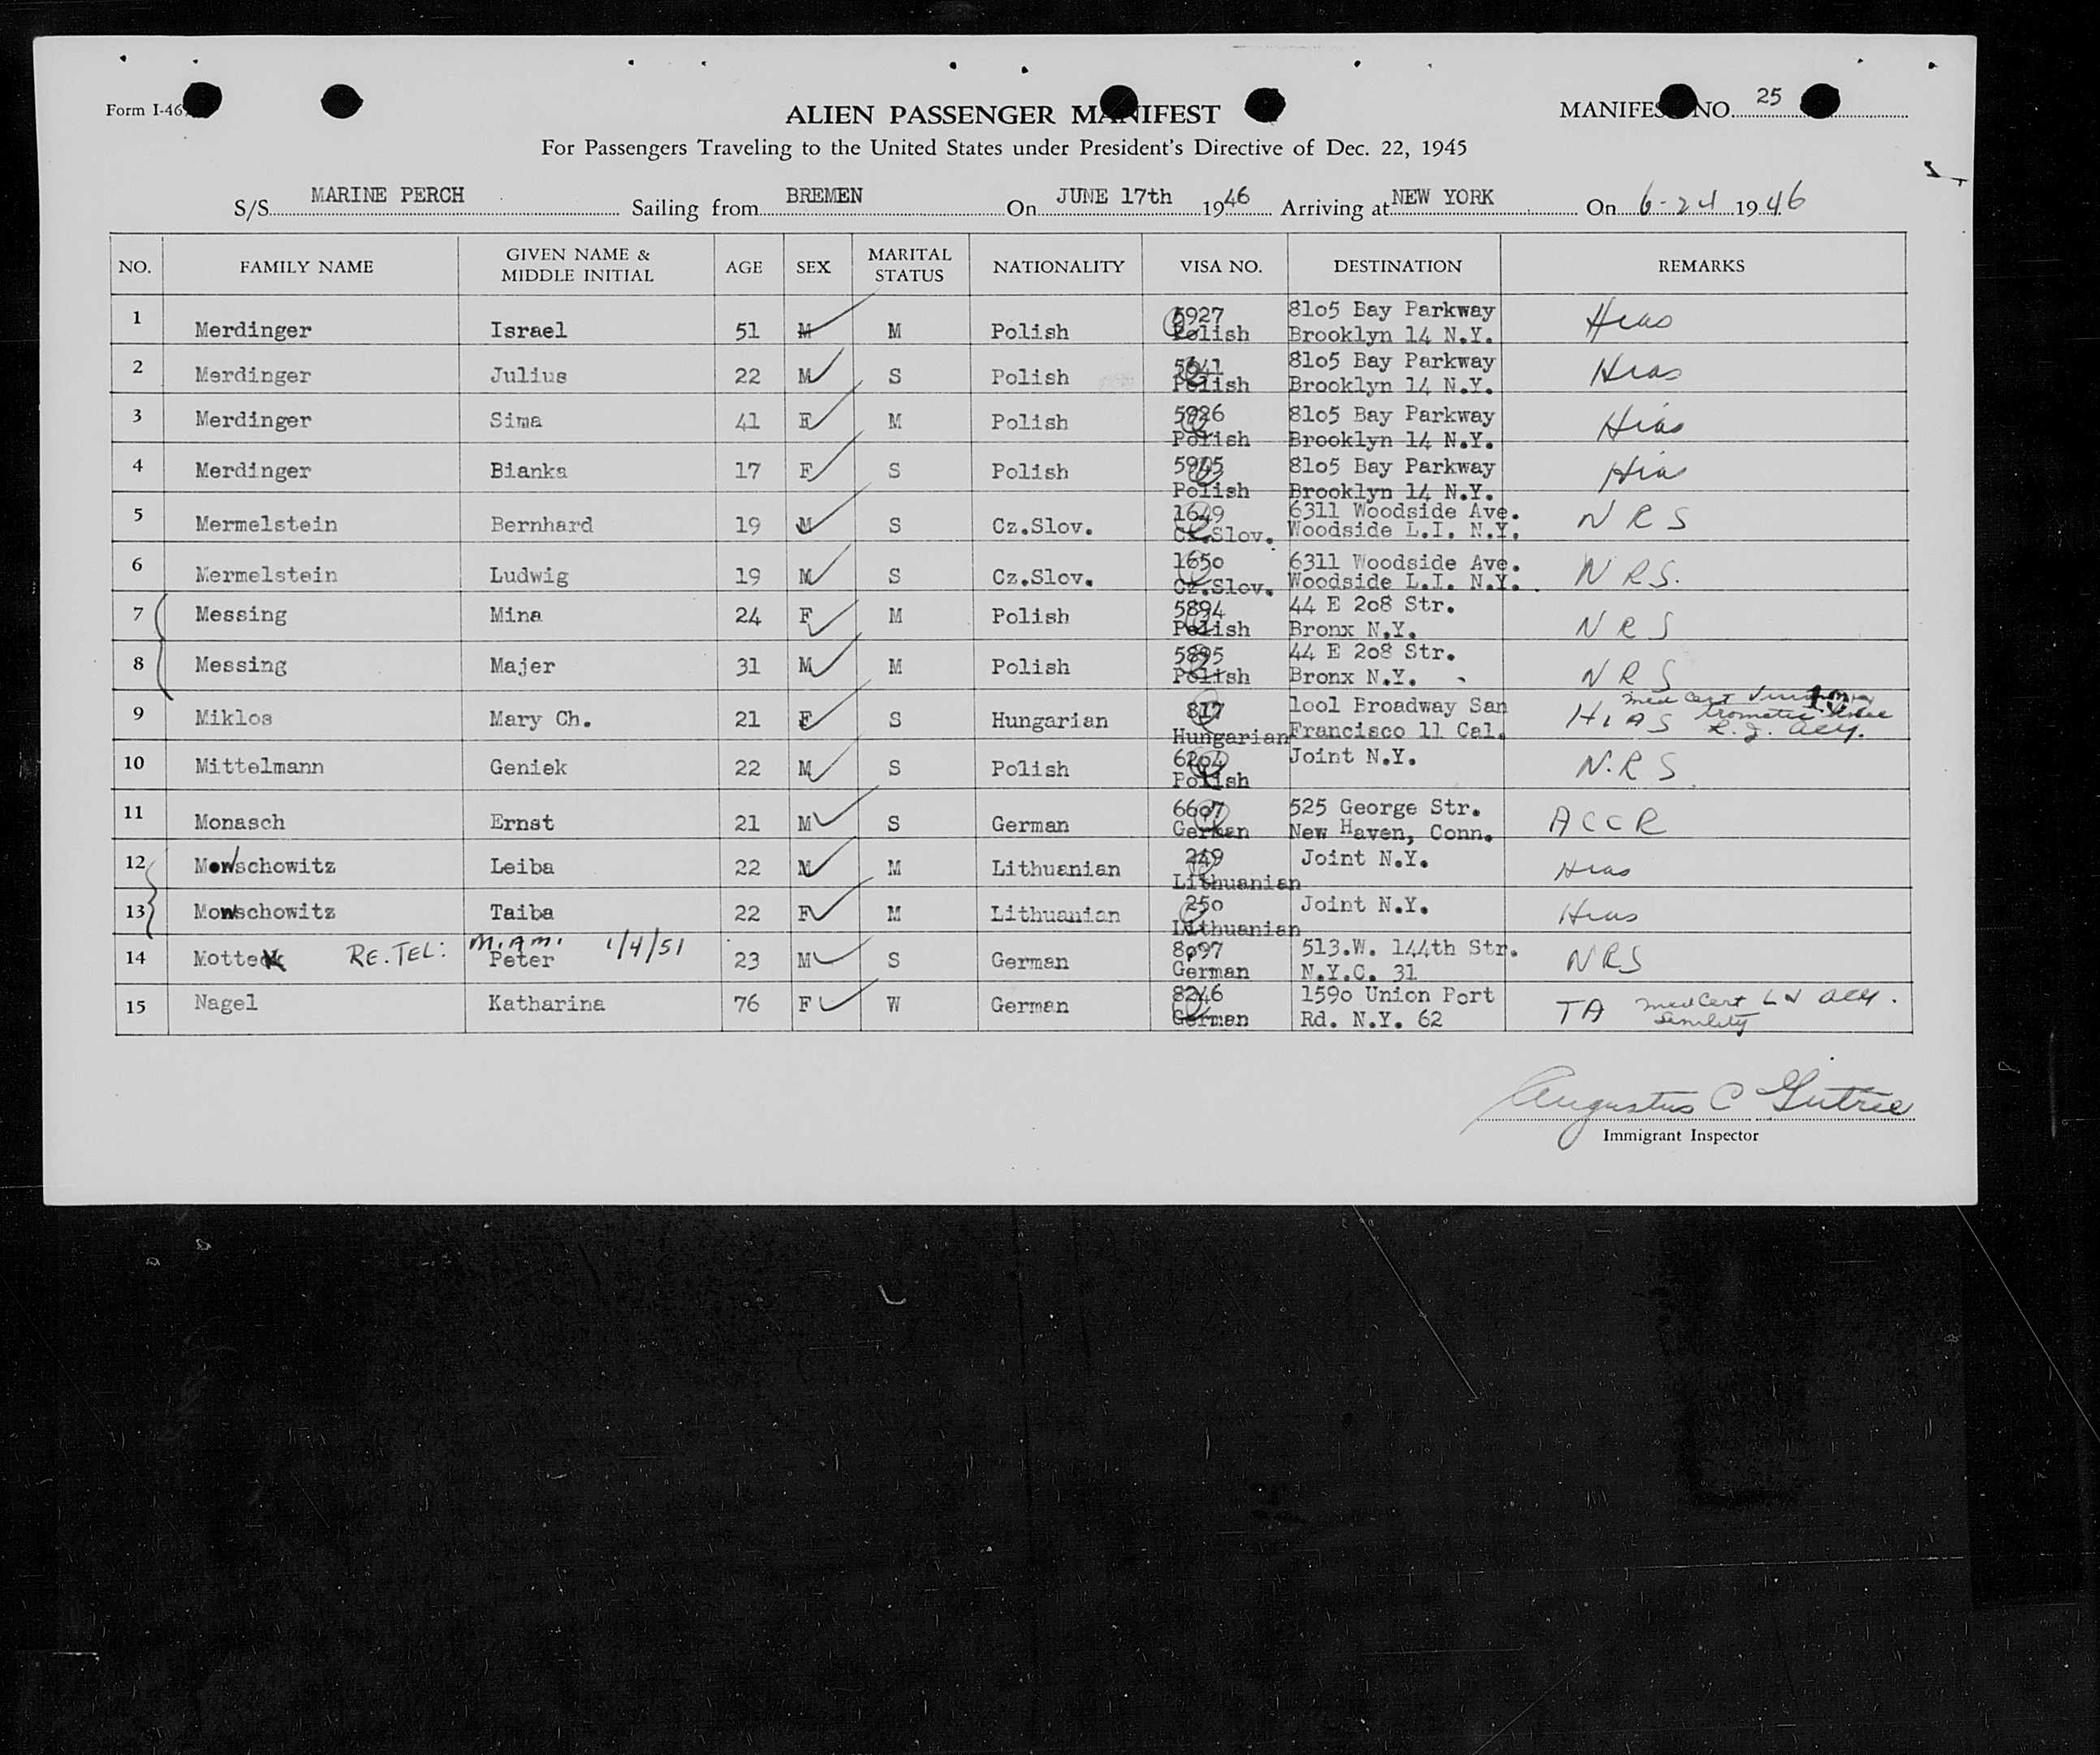 Form I-46
ALIEN PASSENGER MANIFEST
MANIFEST NO. 25
For Passengers Traveling to the United States under President's Directive of Dec. 22, 1945
S/S MARINE PERCH Sailing from BREMEN On JUNE 17th 1946 Arriving at NEW YORK On 6-24 1946
NO. FAMILY NAME GIVEN NAME & MIDDLE INITIAL AGE SEX MARITAL STATUS NATIONALITY VISA NO. DESTINATION REMARKS
1 Merdinger Israel 51 M M Polish 5927 Polish 8lo5 Bay Parkway Brooklyn 14 N.Y. Hias
2 Merdinger Julius 22 M S Polish Polish 8lo5 Bay Parkway Brooklyn 14 N.Y. Hias
3 Merdinger Sima 41 F M Polish 5926 Polish 8lo5 Bay Parkway Brooklyn 14 N.Y. Hias
4 Merdinger Bianka 17 F S Polish 5945 Polish 8lo5 Bay Parkway Brooklyn 14 N.Y. Hias
5 Mermelstein Bernhard 19 M S Cz.Slov. 1649 Cz.Slov. 6311 Woodside Ave. Woodside L.I. N.Y. N R S
6 Mermelstein Ludwig 19 M S Cz.Slov. 165o Cz.Slov. 6311 Woodside Ave. Woodside L.I. N.Y. N R S.
7 Messing Mina 24 F M Polish 5894 Polish 44 E 2o8 Str. Bronx N.Y. N R S
8 Messing Majer 31 M M Polish 5895 Polish 44 E 2o8 Str. Bronx N.Y. N R S
9 Miklos Mary Ch. 21 F S Hungarian 817 Hungarian lool Broadway San Francisco 11 Cal. HIAS med cert
10 Mittelmann Geniek 22 M S Polish 62o4 Polish Joint N.Y. N.R S.
11 Monasch Ernst 21 M S German 66o7 German 525 George Str. New Haven, Conn. ACCR
12 Mowschowitz Leiba 22 M M Lithuanian 249 Lithuanian Joint N.Y. Hias
13 Mowschowitz Taiba 22 F M Lithuanian 25o Lithuanian Joint N.Y. Hias
14 Mottek RE.TEL: MIAMI 1/4/51 Peter 23 M S German 8o97 German 513.W. 144th Str. N.Y.C. 31 NRS
15 Nagel Katharina 76 F W German 8246 German 159o Union Port Rd. N.Y. 62 TA med Cert senility
Augustus C Gutrie
Immigrant Inspector